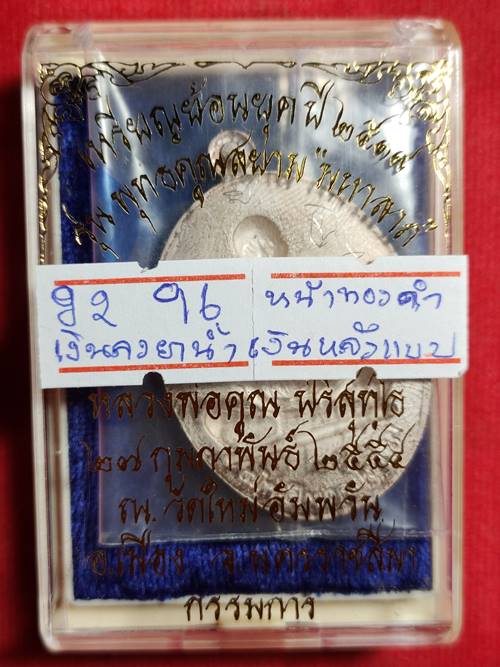 เหรียญย้อนยุคปี ๒๕๑๗
รุ่น พุทธคูณสยาม "มหาลาภ"
เงินลงยาน้ำ
หน้าทองคำ
เงินหลังแบบ
หลวงพ่อคูณ ปริสุทฺโธ
๒๗ กุมภาพันธ์ ๒๕๕๔
ณ. วัดใหม่อัมพวัน
อ.เมือง จ.นครราชสีมา
กรรมการ